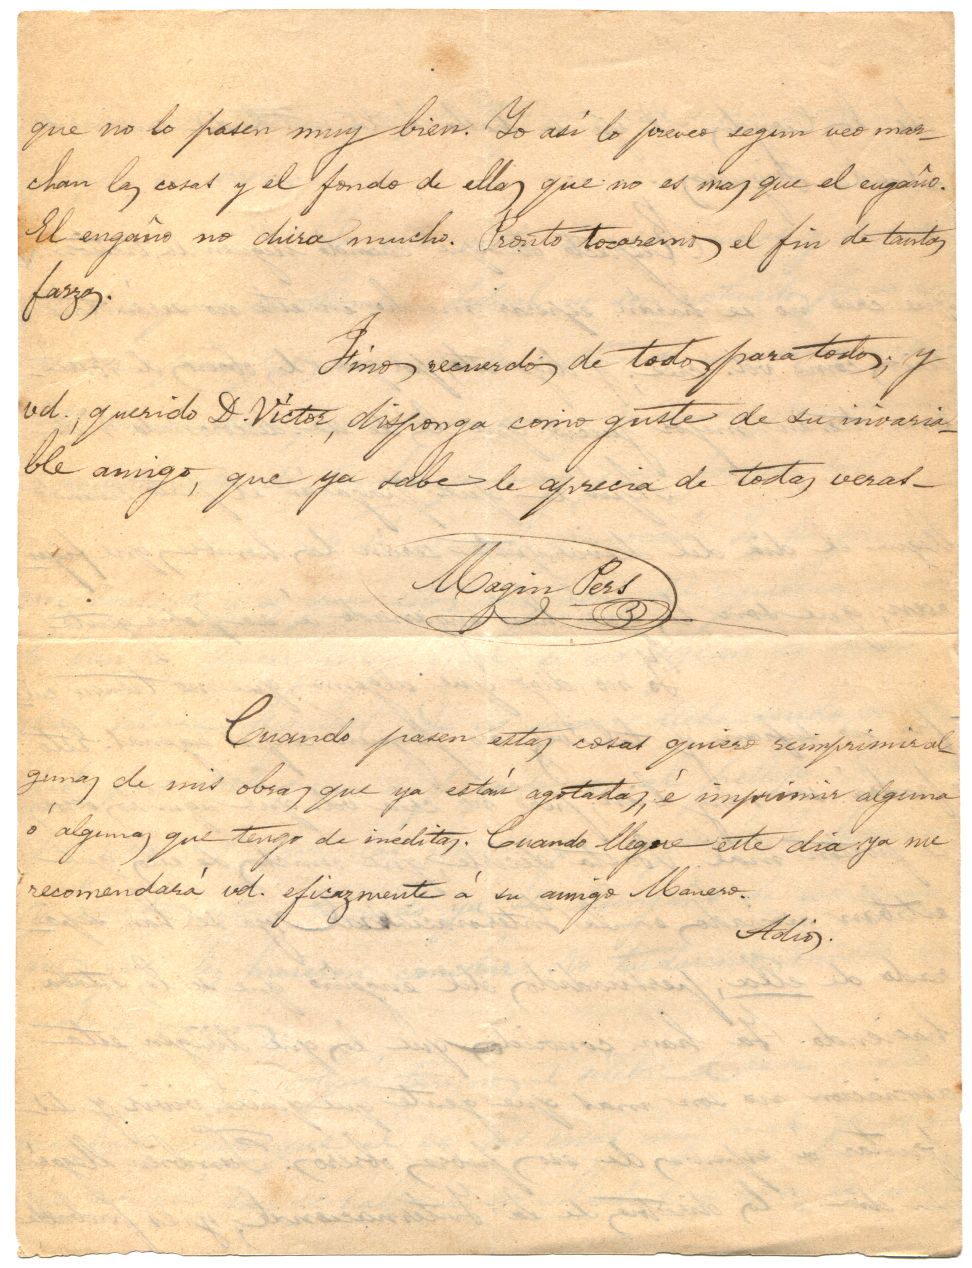 que no lo pasen muy bien. Yo así lo preveo segun veo mar-
chan las cosas y el fondo de ellas que no es mas que el engaño.
El engaño no dura mucho. Pronto tocaremos el fin de tantas
farzas.
Finos recuerdos de todos para todos; y
vd., querido D. Víctor, disponga como guste de su invaria-
ble amigo, que ya sabe le aprecia de todas veras-
Magin Pers
Cuando pasen estas cosas quiero reimprimir al-
gunas de mis obras que ya están agotadas, é imprimir alguna
ó algunas que tengo de inéditas. Cuando llegue este dia ya me
recomendará vd. eficazmente á su amigo Manero.
Adios.